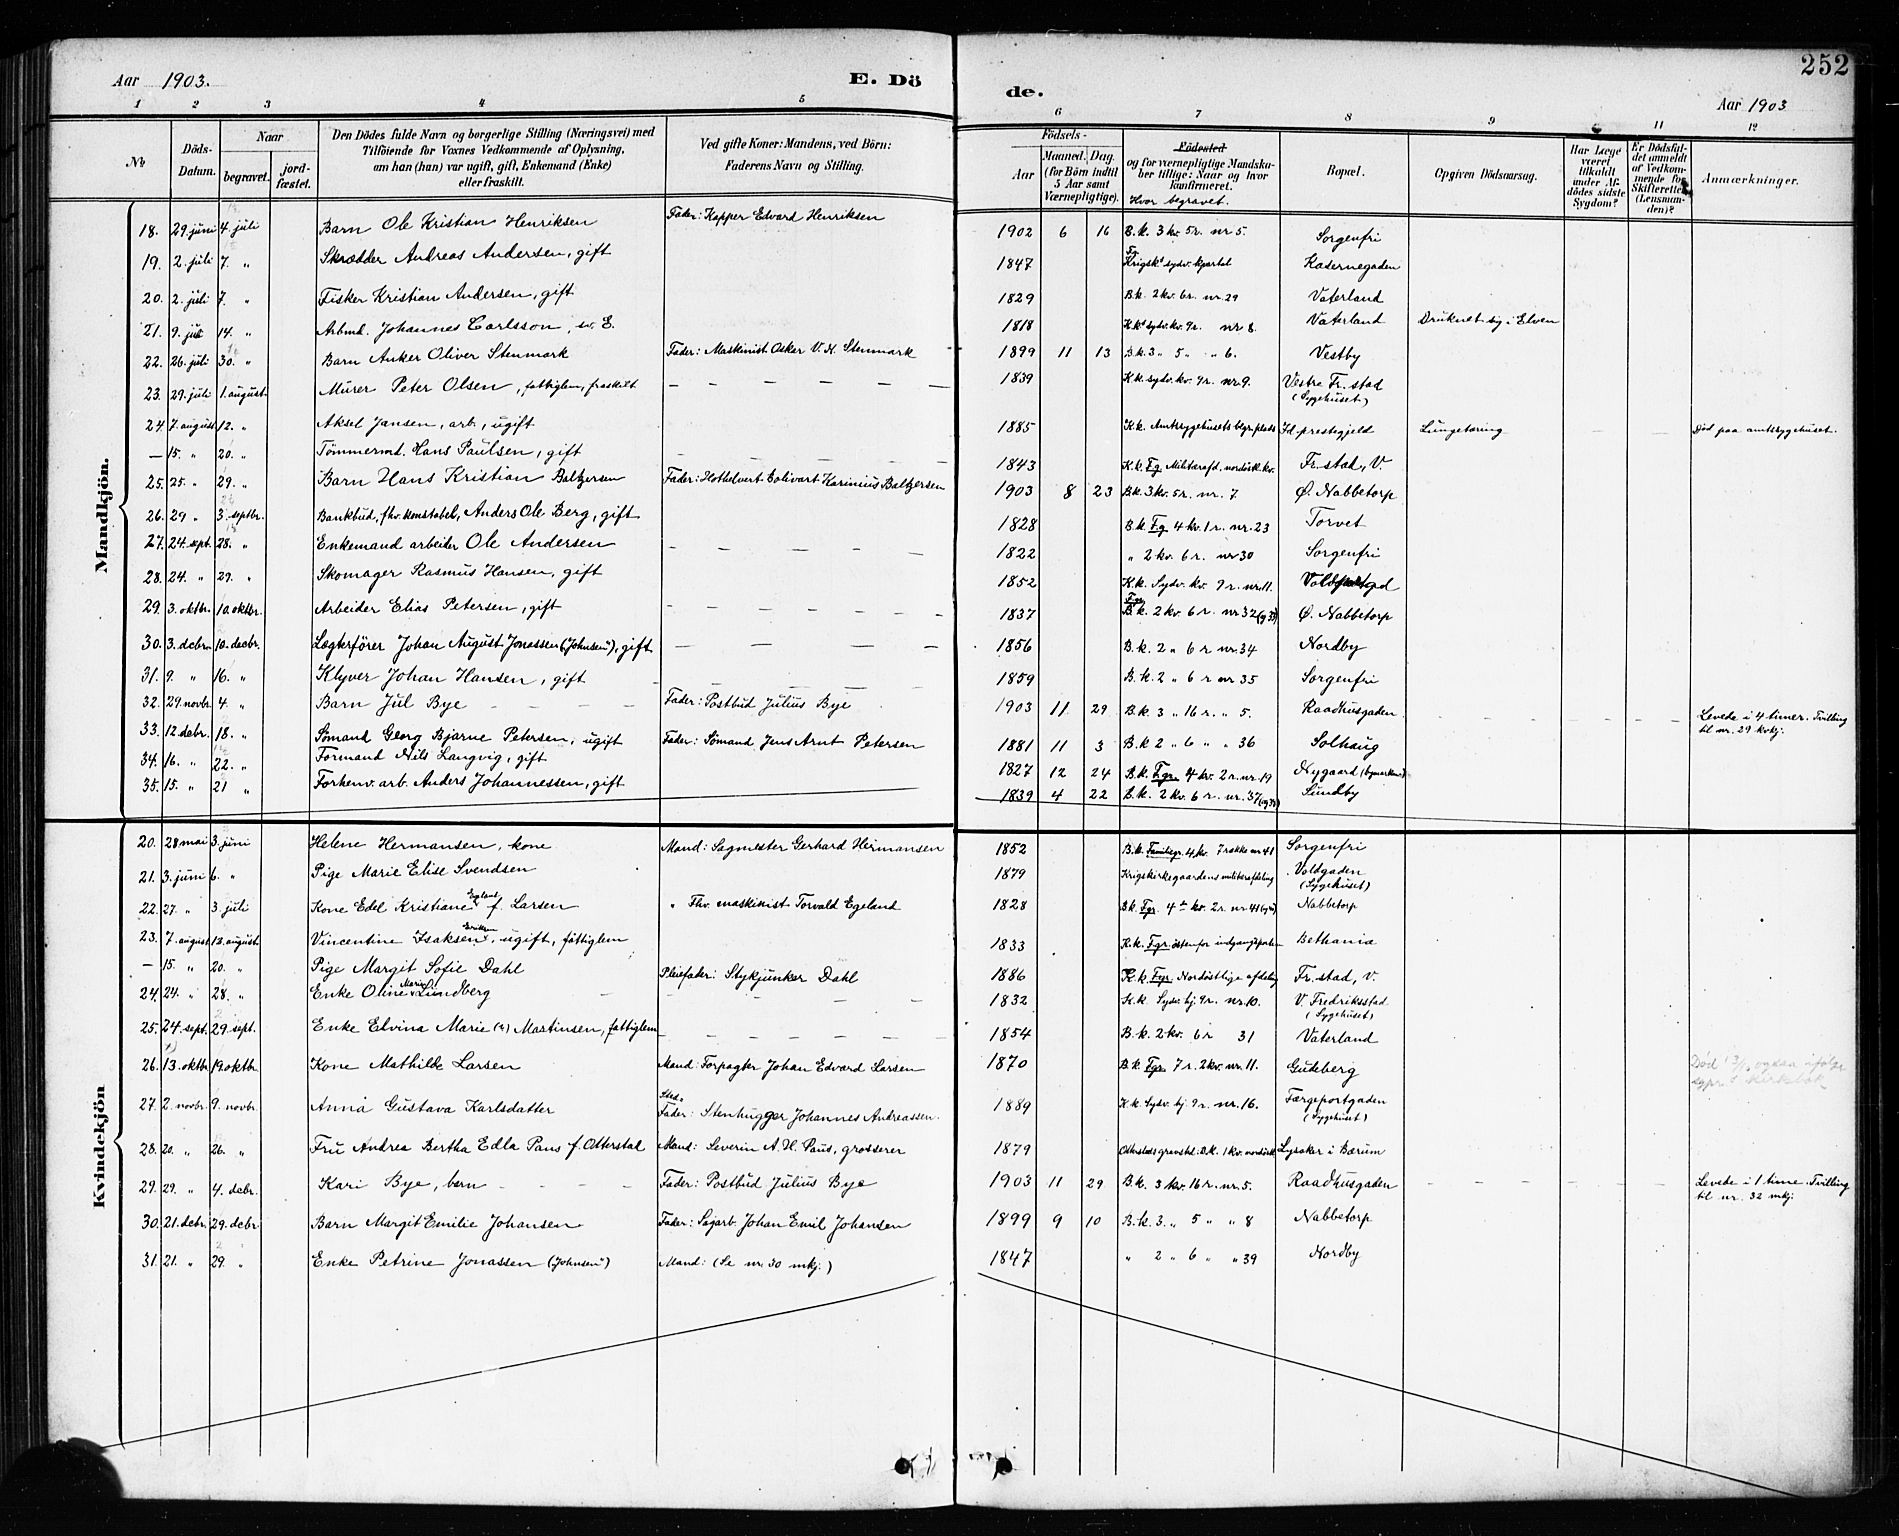 252
Aar 1903. E. Dö de. Aar 1903
1 2 3 4 5 6 7 8 9 11 12
No
Döds-Datum.
Naar
begravet.
jord-fæstet.
Den Dödes fulde Navn og borgerlige Stilling (Næringsvei) med
Tilföiende for Voxnes Vedkommende af Oplysning,
om han (hun) var ugift, gift, Enkemand (Enke)
eller fraskilt.
Ved gifte Koner: Mandens, ved Börn:
Faderens Navn og Stilling.
Födsels-
Aar
Maaned. Dag.
(for Börn indtil
5 Aar samt
Værnepligtige).
Födested
og for værnepligtige Mandska-
ber tillige: Naar og hvor
konfirmeret.
Hvor begravet.
Bopæl.
Opgiven Dödsaarsag.
Har Læge
været
tilkaldt
under Af-
dödes sidste
Sygdom?
Er Dödsfal-
det anmeldt
af Vedkom-
mende for
Skifteretten
(Lensman-
den)?
Anmærkninger.
Mandkjön.
18. 29. juni 4. juli Barn Ole Kristian Henriksen Fader: Kapper Edvard Henriksen 1902 6 16 B.k. 3 kv. 5 r. nr 5. Sorgenfri
19. 2. juli 7. " Skrædder Andreas Andersen, gift 1847 Krigsk. sydv. kvartal Kasernegaden
20. 2. juli 7. " Fisker Kristian Andersen, gift 1829 B.k. 2 kv. 6 r. nr. 29 Vaterland
21. 9. juli 14. " Arbmd. Johannes Carlsson, sv. E. 1818 K.k. sydv. kv. 9 r. nr 8. Vaterland Druknet sig i Elven
22. 26. juli 30. " Barn Anker Oliver Stenmark Fader: Maskinist Osker V. H. Stenmark 1899 11 13 B.k. 3 " 5 " " 6. Vestby
23. 29. juli 1. august. Murer Peter Olsen, fattiglem, fraskilt — — — — — 1839 K.k. sydv. kv. 9 r. nr. 9. Vestre Fr. stad
(Sygehuset)
24. 7. august 12. " Aksel Jansen, arb., ugift 1885 K.k. Amtssygehusets begr. plads Id prestegjeld Lungetæring — — Död paa amtssygehuset.
— 15. " 20. " Tömmermd. Hans Paulsen, gift 1843 K.k. Fg. Militærafd. nordöstl. kv. Fr. stad, V.
25. 25. " 29. " Barn Hans Kristian Baltzersen Fader: Karinius Baltzersen 1903 8 23 B.k. 3 kv. 5 r. nr. 7 Ø. Nabbetorp
26. 29 " 3. septbr. Bankbud, fhv. konstabel, Anders Ole Berg, gift 1828 B.k. Fg. 4 kv. 1 r. nr. 23 Torvet
27. 24. sept. 28. " Enkemand arbeider Ole Andersen — — — — — 1822 " 2 kv. 6 r. nr 30 Sorgenfri
28. 24. " 29. " Skomager Rasmus Hansen, gift 1852 K.k. Sydv. kv. 9 r. nr. 11.
29. 3. oktbr. 10. oktbr. Arbeider Elias Petersen, gift — — — — — 1837 B.k. 2 kv. 6 r. nr. 32 (og 33) Ø. Nabbetorp
30. 3. debr. 10. decbr. Lægterförer Johan August Jonassen ("Johnsen"), gift — — — — 1856 B.k. 2 " 6 r nr. 34 Nordby
31. 9. " 16. " Klyver Johan Hansen, gift — — — — — 1859 B.k. 2 " 6 r nr 35 Sorgenfri
32. 29. novbr. 4. " Barn Jul Bye — — — — Fader: Postbud Julius Bye 1903 11 29 B.k. 3 " 16 r. " 5. Raadhusgaden — — — — — Levede i 4 timer. Tvilling
til nr. 29 kvkj.
33. 12 debr. 18. " Sömand Georg Bjarne Petersen, ugift Fader: Sömand Jens Arnt Petersen 1881 11 3 B.k. 2 " 6 " " 36 Solhaug
34. 16. " 22. " Formand Nils Langvig, gift 1827 12 24 B.k. Fgr. 4 kv. 2 r. nr. 19 Nygaard (bymarken)
35. 15. " 21 " Forhenv. arb. Anders Johannessen, gift 1839 4 22 B.k. 2 kv. 6 r. nr. 37 (og 38) Sundby
Kvindekjön
20. 28 mai 3. juni Helene Hermansen, kone Mand: Sagmester Gerhard Hermansen 1852 B.k. Familiegr. 4 kv. 7 række nr 41 Sorgenfri
21. 3. juni 6. " Pige Marie Elise Svendsen 1879 Krigskirkegaardens militærafdeling Voldgaden
(Sygehuset)
22. 27. " 3. juli Kone Edel Kristiane Egeland f. Larsen " Fhv. maskinist Torvald Egeland 1828 B.k. Fgr. 4de kv. 2 r. nr. 41 Nabbetorp
23. 7. august 13. august Vincentine Isaksen, ugift, fattiglem 1833 K.k. Fgr. östenfor indgangsporten Bethania
— 15. " 20. " Pige Margit Sofie Dahl Pleiefader: Stykjunker Dahl 1886 K.k. Fgr. Nordöstlige afdeling Fr. stad, V.
24. 24. " 28. " Enke Oline Marie Lundberg — — — — — 1832 K.k. Sydv. hj. 9 r. nr. 10. V. Fredriksstad
(Sygehuset)
25. 24 sept. 29. sept. Enke Elvina Marie (?) Martinsen, fattiglem — — — — — 1854 B.k. 2 kv. 6 r 31 Vaterland
26. 13. oktbr. 19. oktbr. Kone Mathilde Larsen Mand: Forpagter Johan Edvard Larsen 1870 B.k. Fgr. 7 r. 2 kv. nr. 11. Gudeberg
27. 2. novbr. 9. novbr. Anna Gustava Karlsdatter Sted-
Fader: Stenhugger Johannes Andreassen. 1889 K.k. Sydv. hj. 9 r. nr. 16. Færgeportgaden
(Sygehuset)
28. 20. " 26. " Fru Andrea Bertha Edla Paus f. Otterstal Mand: Severin A. H. Paus, grosserer 1879 gravsted: B.K. 1 kv. nordöstl. Lysaker i Bærum
29. 29. " 4. debr. Kari Bye, barn — — — — Fader: Postbud Julius Bye 1903 11 29 B.k. 3 kv. 16 r. nr. 5. Raadhusgaden — — — — — Levede i 1 time. Tvilling
til nr. 32 mkj.
30. 21. debr. 29. debr. Barn Margit Emilie Johansen Fader: Sagarb. Johan Emil Johansen 1899 9 10 B.k. 3. " 5 " " 8 Nabbetorp
31. 21. " 29. " Enke Petrine Jonassen ("Johnsen") Mand: (Se nr. 30 mkj.) 1847 " 2 " 6 " " 39 Nordby